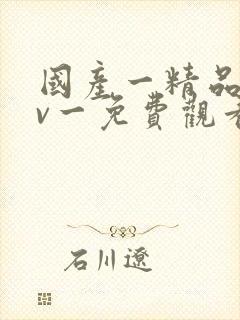 國產一精品
v一免費觀看
石川遼